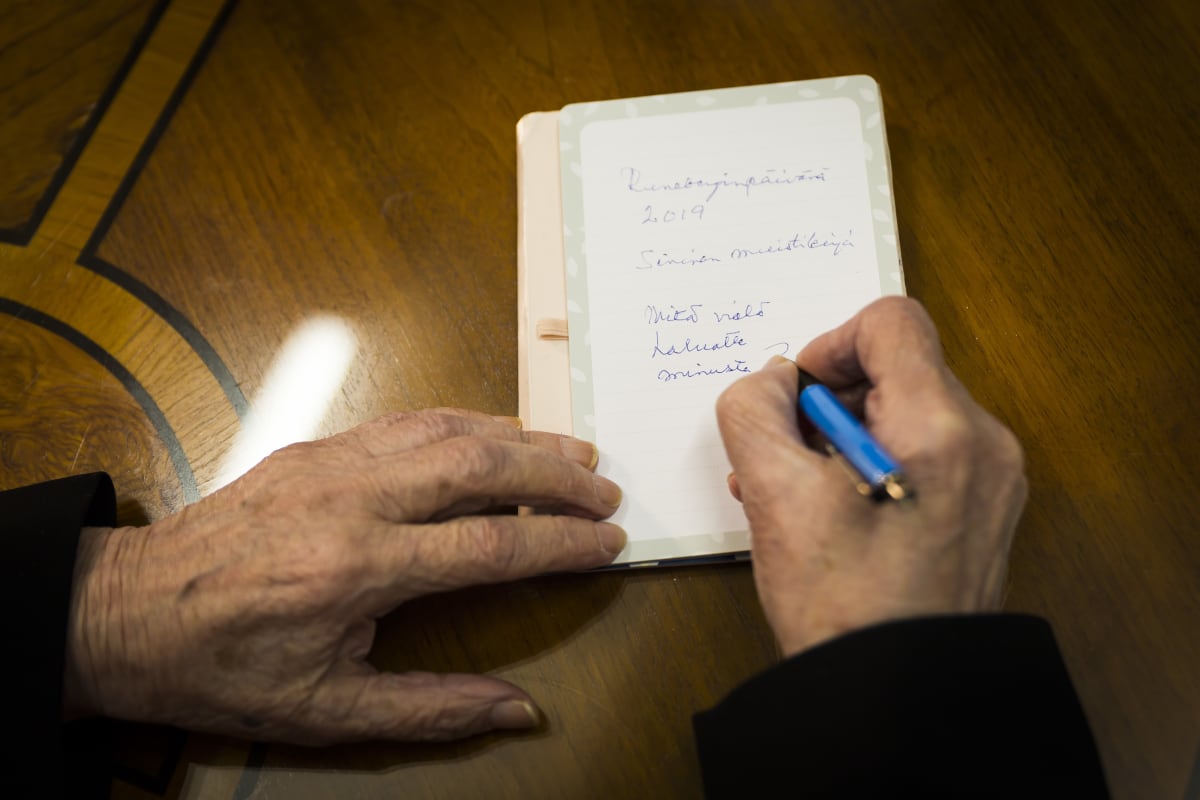 Runeberginpäivänä
2019
Sininen muistikirja
Mitä vielä
haluatte
minusta ?